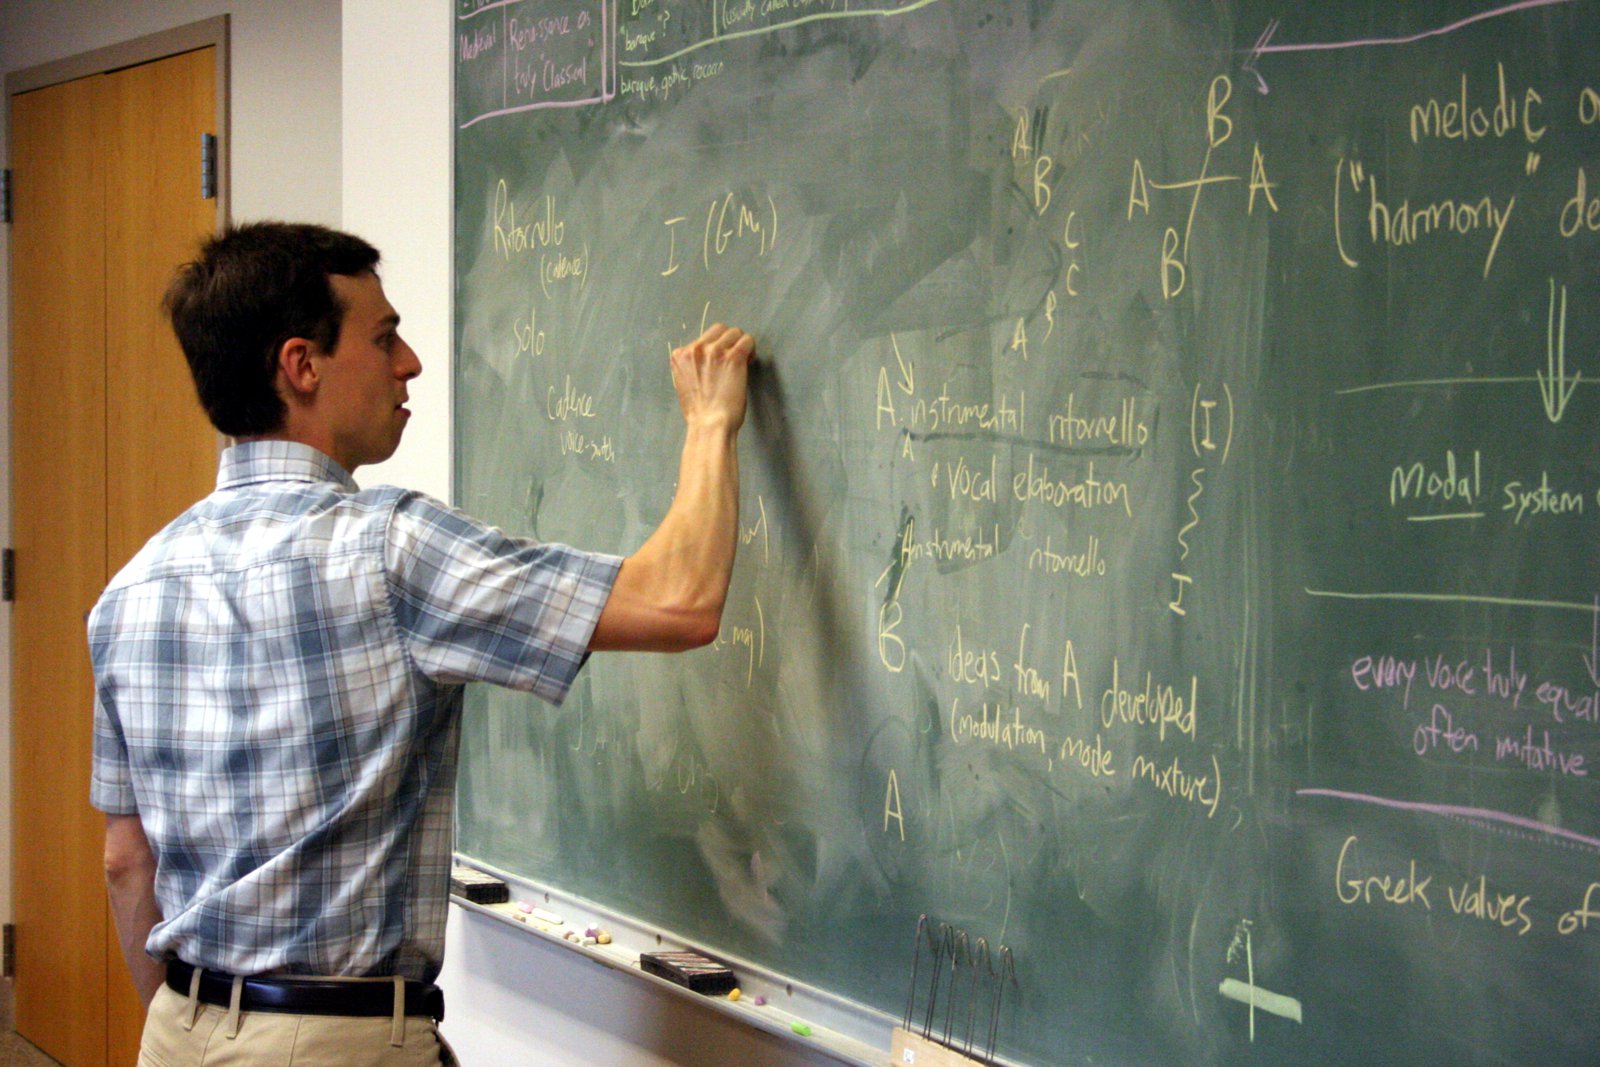 Medieval
Renaissance as
truly "Classical"
"baroque"?
(usually called
baroque, gothic, rococo
Ritornello
(cadence)
I (GMaj)
solo
Cadence
voice-switch
maj)
A
B
C
C
B
A
B
A A
B
A instrumental ritornello (I)
A
vocal elaboration
A instrumental ritornello
I
B ideas from A developed
(modulation, mode mixture)
A
melodic
("harmony" de
Modal system
every voice truly equal
often imitative
Greek values of